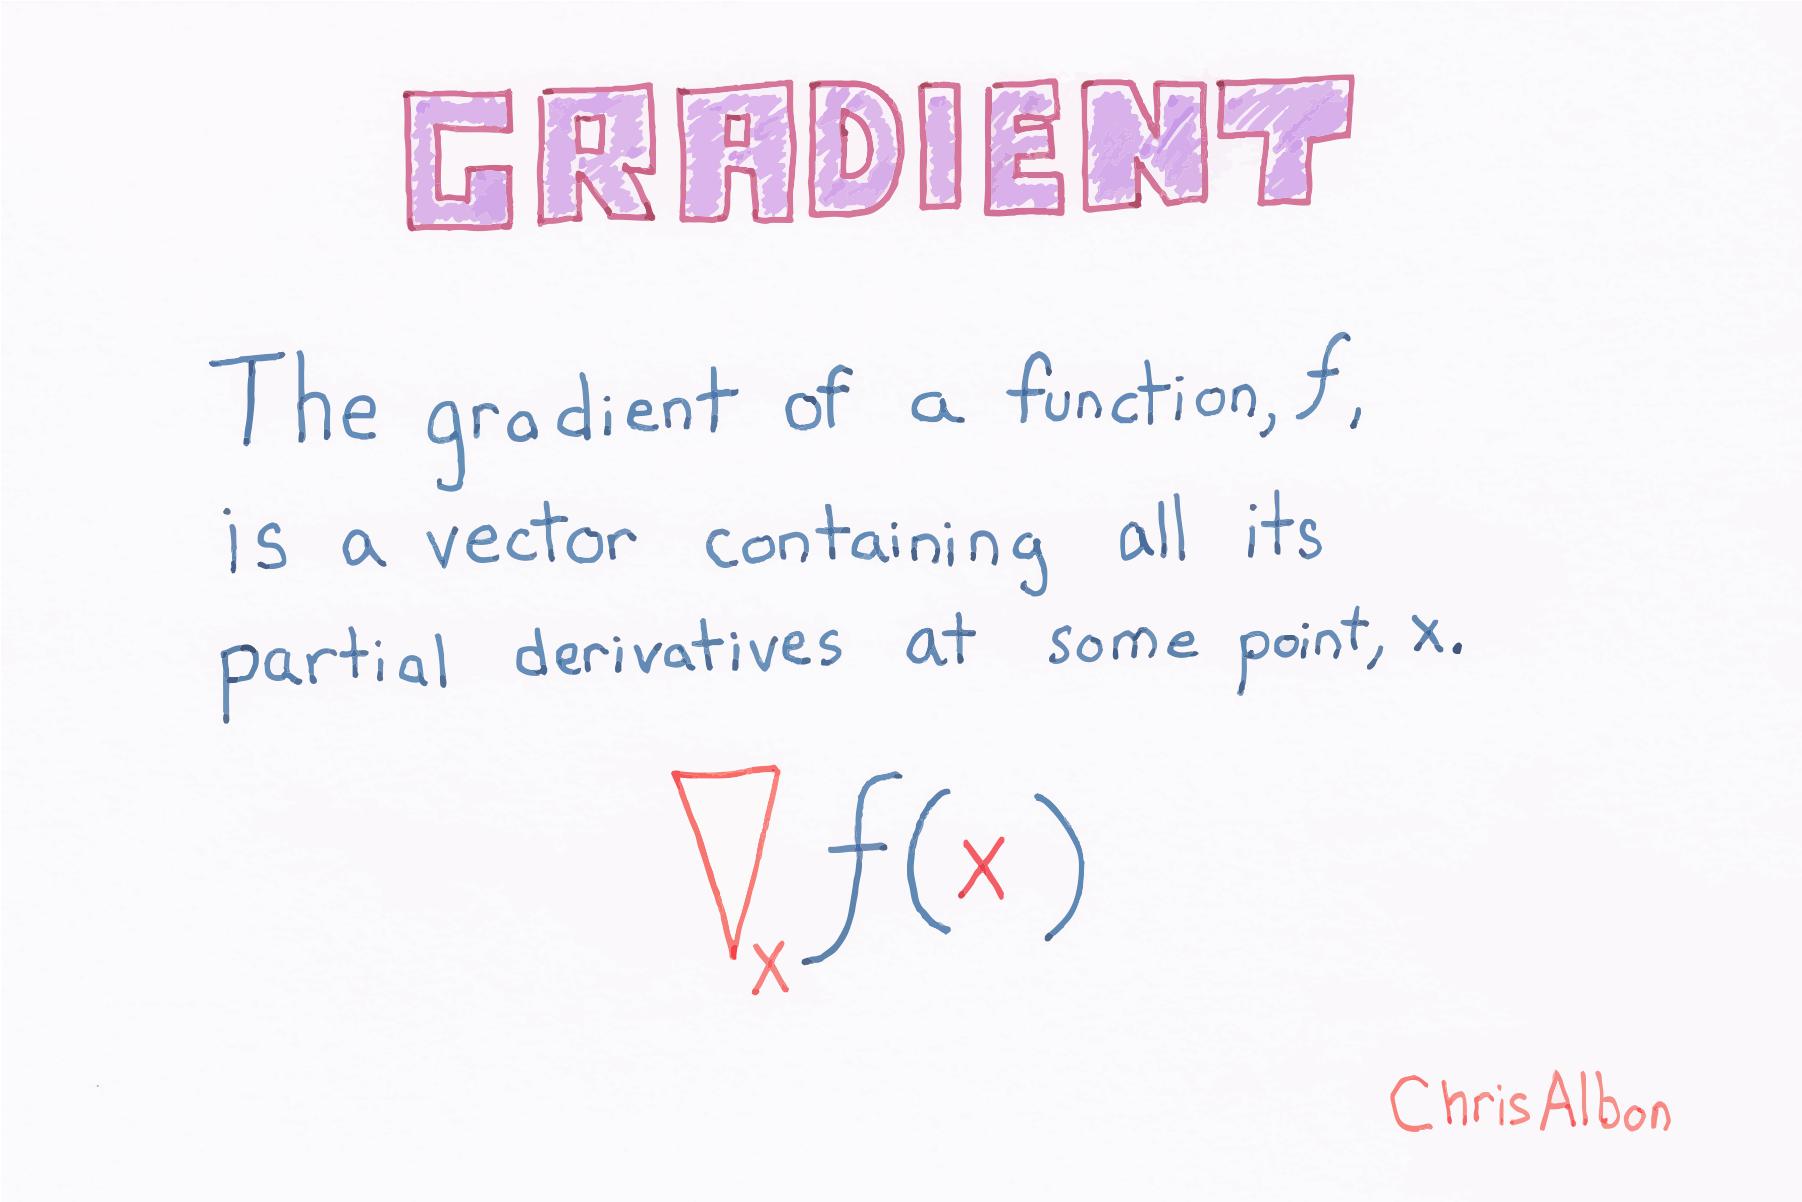 GRADIENT
The gradient of a function, f,
is a vector containing all its
partial derivatives at some point, x.
∇ₓ f(x)
Chris Albon